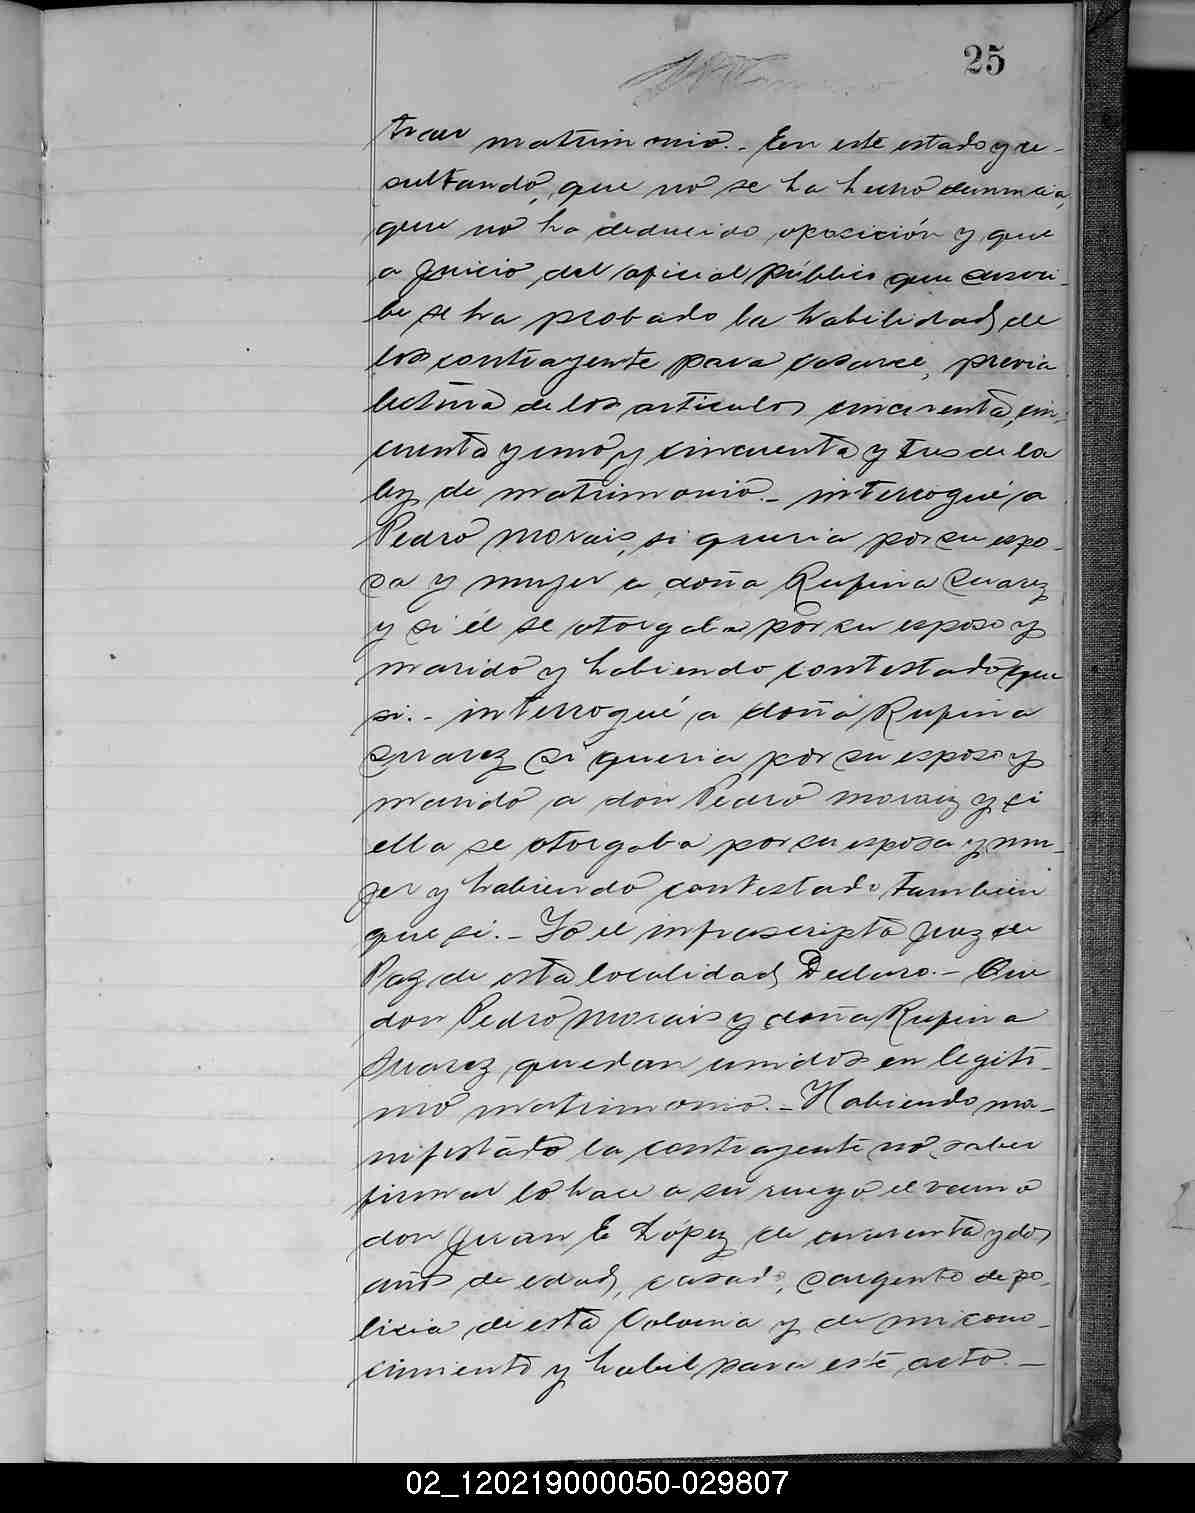 25
traer matrimonio.- En este estado y re-
sultando, que no se ha hecho denuncia,
que no ha deducido oposición y que
a Juicio del oficial público que suscri-
be se ha probado la habilidad de
los contrayente para casarce, previa
lectura de los articulos cincuenta, cin-
cuenta y uno, y cincuenta y tres de la
ley de matrimonio.- interrogué a
Pedro Morais, si queria por su espo-
sa y mujer a doña Rufina Suarez
y si él se otorgaba por su esposo y
marido y habiendo contestado que
si.- interrogué a doña Rufina
Suarez si queria por su esposo y
marido a don Pedro Moraiz y si
ella se otorgaba por su esposa y mu-
jer y habiendo contestado tambien
que si.- Yo el infrascripto Juez de
Paz de esta localidad, Declaro.- Que
don Pedro Morais y doña Rufina
Suarez, quedan unidos en legiti-
mo matrimonio.- Habiendo ma-
nifestado la contrayente no saber
firmar lo hace a su ruego el vecino
don Juan E López de cuarenta y dos
años de edad, casado, sargento de po-
licia de esta Colonia y de mi cono-
cimiento y habil para este acto.-
02_120219000050-029807